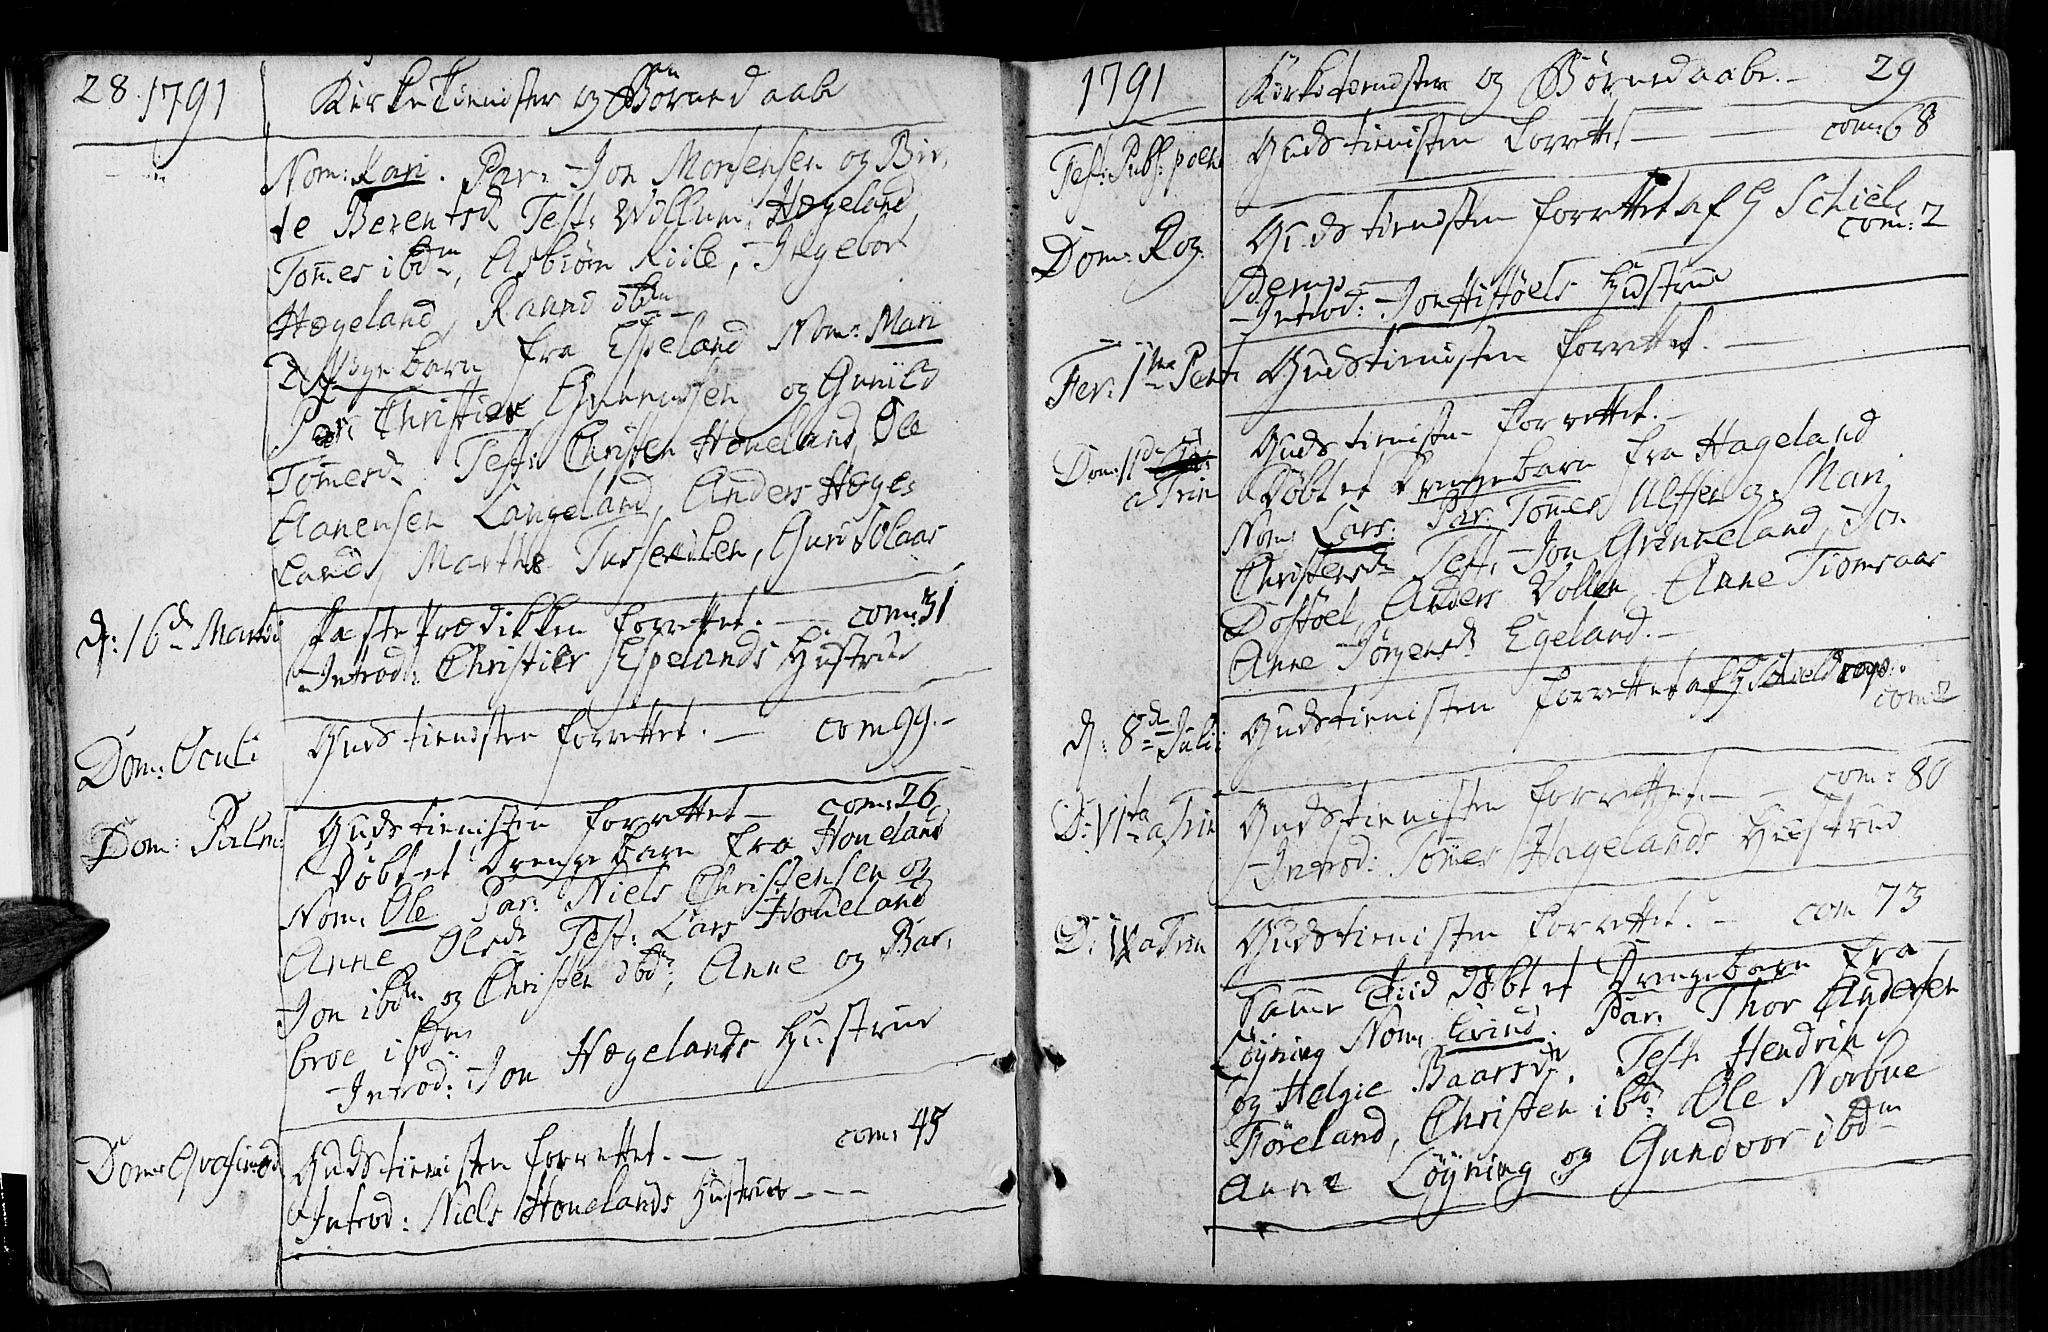 28. 1791 Kirketienister og Børnedaab
Nom: Kari. Par: Jon Mortensen og Bir,
te Berentsd Test: Willum Hægeland
Tom̄es ibdm, Asbiørn Kiile, Ingebor
Hægeland, Rannd ibdm
D Pigebarn fra Espeland Nom: Mari
Par: Christen Gunnersen og Gunild
Tom̄esd. Test: Christen Honeland, Ole
Aanensen Langeland, Anders Hæge-
land, Marthe Tusseviken, Guri
d: 16d Martii Faste Prædikken forrettet. — com: 31
Introd: Christens Espelands Hustrue
Dom: Oculi Gudstienisten forrettet. — com 99. —
Dom: Palm: Gudstienisten forrettet — com: 26
Døbt et Drengebarn fra Honeland
Nom: Ole Par: Niels Christensen og
Anne Olsd. Test: Lars Honeland
Jon ibdm og Christen ibdm, Anne og Bar,
broe ibdm
Introd: Jon Hægelands Hustrue
Dom: Qvasimod Gudstienisten forrettet. — com: 45
Introd: Niels Honelands Hustrue - - -
1791 Kirketienister og Børnedaab. — 29
Gudstienisten forrettet — — com: 68
Dom: Rog. Gudstienisten forrettet af H Schiel
derup — com: 2
Introd: Jon Hustrue
Fer: 1ma Pent: Gudstienisten forrettet. —
Dom: 1d a Trin Gudstienisten forrettet. —
Døbt et Drengebarn fra Hageland
Nom: Lars. Par: Tom̄es Ulffsen og Mari
Christensd. Test: Jon Grinneland, Jon
Dostøel Anders Vollen, Anne Tiomsaas
Anne Jørgensd. Egeland. —
d: 8d Julii Gudstienisten forrettet af H Schieldrop.
com: 2
D: VIta a Trin Gudstienisten forrettet. — com: 80
Introd: Tom̄es Hagelands Hustrue
D: IX a Trin Gudstienisten forrettet. — com 73
Samme Tiid døbt et Drengebarn fra
Løyning Nom: Eivind. Par: Thor Andersen
og Helgie Baarsd. Test: Hendrik
Føreland, Christen ibd. Ole Norbue
Anne Løyning og Gundvor ibdm